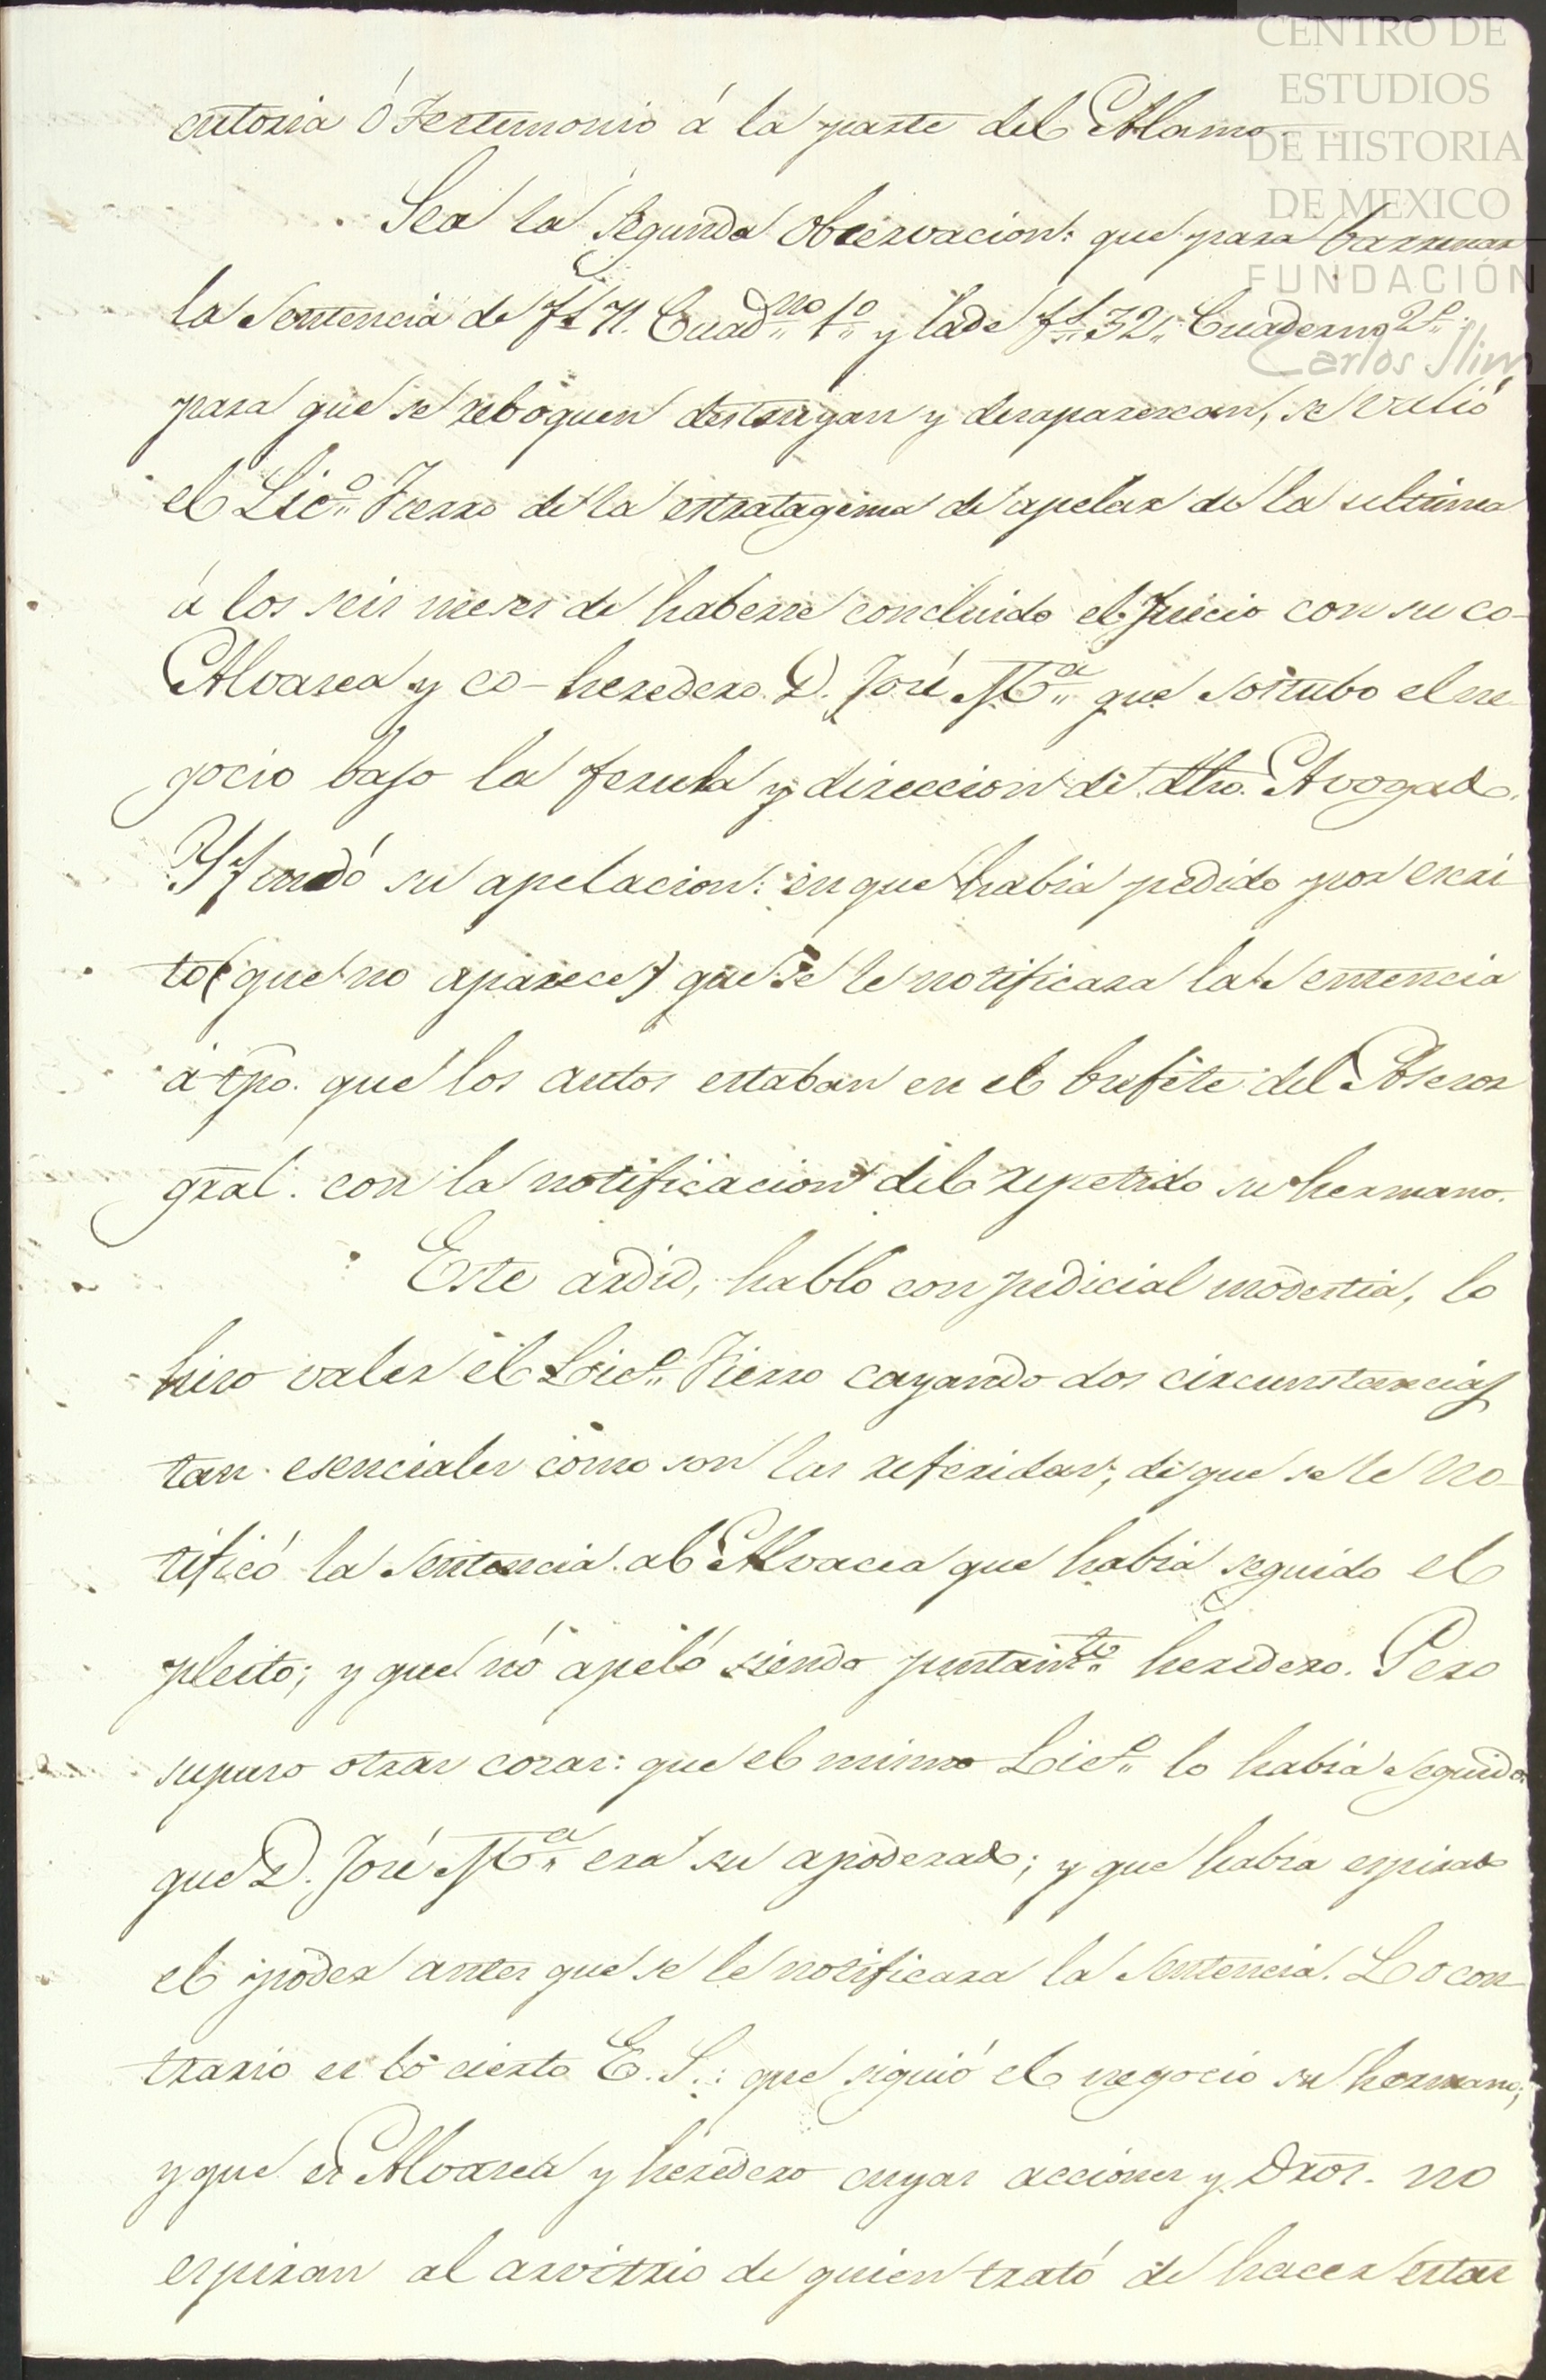 CENTRO DE
ESTUDIOS
DE HISTORIA
DE MEXICO
FUNDACIÓN
Carlos Slim
cutoria ó Testimonio á la parte del Alamo.
Sea la segunda observacion: que para barrenar
la Sentencia de fs 71. Cuadno 1o y la de fs. 32 Cuaderno 2o
para que se reboquen destruyan y desaparescan, se valió
el Lico Fierro de la estratagema de apelar de la ultima
á los seis meses de haberse concluido el Juicio con su co-
Alvasea y co-heredero D. José Ma que sostubo el ne
gocio bajo la ferula y direccion de dho. Avogado.
Y fundó su apelacion: en que habia pedido por escri
to (que no aparece) que se le notificara la Sentencia
á tpo. que los autos estaban en el bufete del Asesor
gral. con la notificacion del repetido su hermano.
Este ardid, hablo con judicial modestia, lo
hiso valer el Lico Fierro cayando dos circunstancias
tan esenciales como son las referidas; de que se le no-
tificó la Sentencia al Alvacea que habia seguido el
pleito; y que nó apeló siendo juntamte heredero. Pero
supuso otras cosas: que el mismo Lico lo habia seguido
que D. José Ma era su apoderado; y que habia espirado
el poder antes que se le notificara la Sentencia. Lo con
trario es lo cierto E. S.: que siguió el negocio su hermano;
y que es Alvasea y heredero cuyas acciones y dros. no
espiran al arvitrio de quien trató de hacer estas